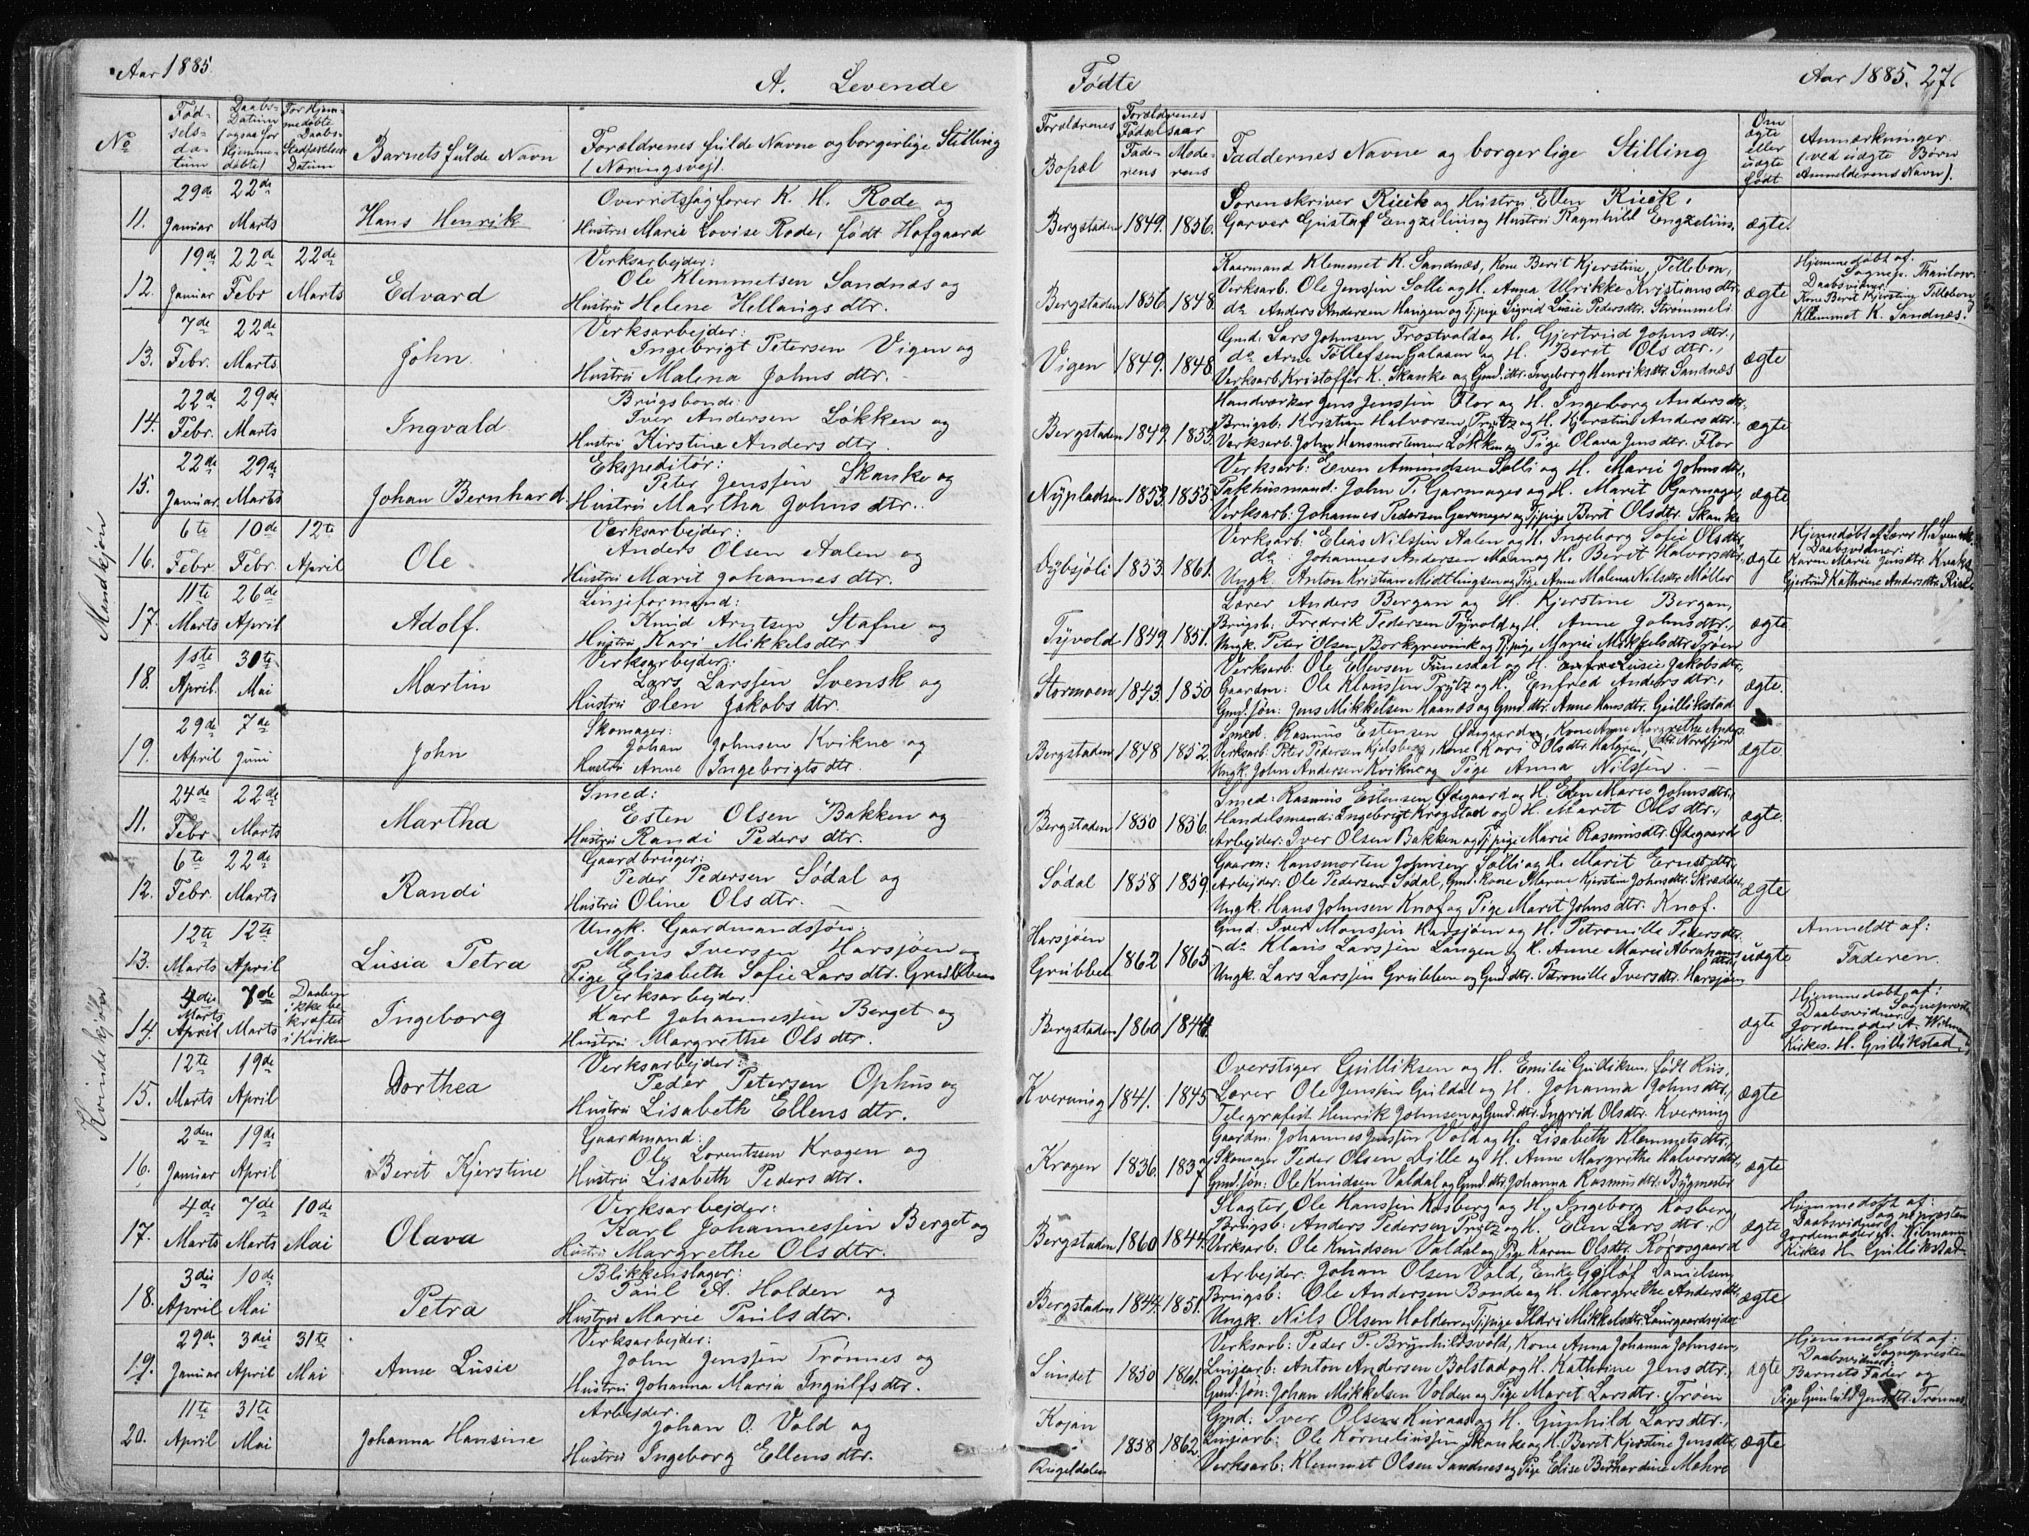 Aar 1885.
A. Levende
Fødte
Aar 1885. 27
No
Fød-
sels-
da-
tum
Daabs-
Datum
(ogsaa for
hjemme-
døbte)
For Hjem-
medøbte
Daabs-
Stadfæstelses
Datum
Barnets fulde Navn
Forældrenes fulde Navne og borgerlige Stilling
(Næringsvej).
Forældrenes
Bopæl
Forældrenes
Fødselsaar
Fade-
rens
Mode-
rens
Faddernes Navne og borgerlige Stilling
Om
ægte
eller
uægte
født
Anmærkninger
(ved uægte Børn
Anmelderens Navn).
Mandkjøn
11. 29de Januar 22de Marts Hans Henrik
Overretssagfører K. H. Rode og
Hustru Marie Lovise Rode, født Hofgaard
Bergstaden 1849. 1856.
Sorenskriver Rieck og Hustru Ellen Rieck,
Garver Gustaf Engzelius og Hustru Ragnhild Engzelius,
ægte
12. 19de Januar 22de Febr 22de Marts Edvard
Verksarbejder:
Ole Klemmetsen Sandnæs og
Hustru Helene Hellaugs dtr.
Bergstaden 1856. 1848.
Kaarmand Klemmet K. Sandnæs, Kone Berit Kjerstine Tellebon,
Verksarb. Ole Jenssen Solle og H. Anna Ulrikke Kristians dtr.
do Anders Andersen Haugen og Tjpige Sigrid Lusie Peders dtr. Strømmeli
ægte
Hjemmedøbt af
Sognep. Thaulow.
Daabsvidner:
Kone Berit Kjerstine Tellebon
Klemmet K. Sandnæs.
13. 7de Febr. 22de Marts. John
Verksarbejder:
Ingebrigt Petersen Vigen og
Hustru Malena Johns dtr.
Vigen 1849. 1848
Gmd. Lars Johnsen Frostvold og H. Gjertrud Johns dtr.,
do Arne Tollefsen Galaaen og H. Berit Ols dtr.,
Verksarb. Kristoffer K. Skanke og Gmd. dtr. Ingeborg Henriksdtr. Sandnæs
ægte
14. 22de Febr. 29de Marts Ingvald
Brugsbonde:
Iver Andersen Løkken og
Hustru Kirstine Anders dtr.
Bergstaden 1849. 1853.
Handværker Jens Jenssen Flor og H. Ingeborg Anders dtr.
Brugsb: Kristian Halvorsen Trytz og H. Kjerstine Anders dtr.,
Verksarb. John Hansmortensen Løkken og Pige Olava Jens dtr. Flor
ægte
15. 22de Januar 29de Marts Johan Bernhard.
Ekspeditør:
Peter Jenssen Skanke og
Hustru Martha Johns dtr.
Nypladsen 1853. 1855.
Verksarb: Even Amundsen Solli og H. Marie Johns dtr.,
Pakhusmand: John P. Garmager og H. Marit Garmager,
Verksarb: Johannes Pedersen Garmager og Tjpige Berit Olsdtr. Skanke
ægte
16. 6te Febr. 10de Febr. 12te April Ole
Verksarbejder:
Anders Olsen Aalen og
Hustru Marit Johannes dtr.
1853. 1861.
Verksarb. Elias Nilssen Aalen og H. Ingeborg Sofie Ols dtr,
do Johannes Andersen Moan og H. Berit Halvorsdtr,
Ungk. Anton Kristian Midtlingsen og Pige Anne Malena Nilsdtr Møller
ægte
Hjemmedøbt af Lærer H. Svensk
Daabsvidner:
Karen Marie Jens dtr. Kvaks
Gjertrud Kathrine Anders dtr. Riise
17. 11te Marts 26de April Adolf.
Linjeformand:
Knud Arntsen Stafne og
Hustru Kari Mikkels dtr.
Tyvold 1849. 1851.
Lærer Anders Bergan og H. Kjerstine Bergan,
Brugsb: Fredrik Pedersen Tyvold og H. Anne Johns dtr.,
Ungk. Peter Olsen Borkgrevink og Tjpige Marie Mikkels dtr. Trøen
ægte
18. 1ste April. 30te Mai Martin
Verksarbejder:
Lars Larssen Svensk og
Hustru Elen Jakobs dtr.
Stormoen 1843. 1850
Verksarb: Ole Ellevsen Funesdal og H. Lusie Jakobs dtr.,
Gaardm: Ole Klaussen Trytz og H. Enfred Anders dtr.,
Gmd. søn: Jens Mikkelsen Haanæs og Gmd. dtr. Anne Hans dtr. Gullikstad
ægte.
19. 29de April 7de Juni John
Skomager:
Johan Johnsen Kvikne og
Hustru Anne Ingebrigts dtr.
Bergstaden 1848 1852.
Smed: Rasmus Estensen Ødegaard og Kone Anne Margrethe Anders dtr. Nordfjor
Verksarb. Peter Pedersen Kjelsberg, Kone Kari Ols dtr. Halgren,
Ungk. John Andersen Kvikne og Pige Anna Nilssen.
ægte.
Kvindekjøn
11. 24de Febr 22de Marts Martha
Smed:
Esten Olsen Bakken og
Hustru Randi Peders dtr.
Bergstaden 1850 1856.
Smed: Rasmus Estensen Ødegaard og H. Elen Marie Johns dtr.,
Handelsmand: Ingebrigt Krogstad og H. Marit Ols dtr.,
Arbejder: Iver Olsen Bakken og Tjpige Marie Rasmus dtr. Ødegaard
ægte.
12. 6te Febr. 22de Marts Randi
Gaardbruger:
Peder Pedersen Sødal og
Hustru Oline Ols dtr.
Sødal 1858 1859
Gaardm: Hansmorten Johnsen Solli og H. Marit Ernst dtr.
Arbejder: Ole Pedersen Sødal, Gmd. kone Marne Kjerstine Johns dtr. Skrædder,
Ungk. Hans Johnsen Knof og Pige Maret Johns dtr. Knof.
ægte
13. 12te Marts 12te April Lusia Petra
Ungk. Gaardmandssøn,
Mons Iversen Harsjøen og
Pige Elizabeth Sofie Lars dtr. Grubben
Harsjøen
Grubben 1862 1865
Gmd: Iver Monssen Harsjøen og H. Petronille Peders dtr.
do Klaus Larssen Langen og H. Anne Marie Abrahams dtr.
Ungk. Lars Larssen Grubben og Gmd. dtr. Petronille Ivers dtr. Harsjøen
uægte
Anmeldt af:
Faderen.
14. 4de Marts April 7de Marts Daaben ikke be kræftet i Kirken Ingeborg
Verksarbejder:
Karl Johannessen Berget og
Hustru Margrethe Ols dtr.
Bergstaden 1860 1844
ægte
Hjemmedøbt af:
Sognepresten
Daabsvidner:
Jordemoder A. Wilmann
Kirkes. H. Gullikstad.
15. 12te Marts 19de April Dorthea
Verksarbejder:
Peder Petersen Ophus og
Hustru Lisabeth Ellens dtr.
Kverning 1841. 1845
Overstiger Gulliksen og H. Emilie Gulliksen, født Riis,
Lærer Ole Jenssen Guldal og H. Johanna Johns dtr.,
Telegrafist Henrik Johnsen og Gmd. dtr. Ingrid Ols dtr. Kverning
ægte
16. 2den Januar 19de April Berit Kjerstine
Gaardmand:
Ole Lorentzen Krogen og
Hustru Lisabeth Peders dtr.
Krogen 1836. 1837
Gaardm: Johannes Jenssen Vold og H. Lisabeth Klemmets dtr.,
Skomager Peder Olsen Lille og H. Anne Margrethe Halvors dtr.,
Gmd. søn: Ole Knudsen Valdal og Gmd. dtr. Johanna Rasmus dtr. Bygmester
ægte
17. 4de Marts 7de Marts 10de Mai Olava
Verksarbejder:
Karl Johannessen Berget og
Hustru Margrethe Ols dtr.
Bergstaden 1860 1844.
Slagter, Ole Hanssen Kosberg og H. Ingeborg Kosberg
Brugsb: Anders Pedersen Trytz og H. Elen Lars dtr.,
Verksarb: Ole Knudsen Valdal og Pige Karen Ols dtr. Rørosgaard
ægte
Hjemmedøbt af:
Sognepresten
Daabsvidner:
Jordemoder A. Wilmann
Kirkes. H. Gullikstad
18. 3die April 10de Mai Petra
Blikkenslager:
Paul A. Holden og
Hustru Marie Pauls dtr.
Bergstaden 1844. 1851.
Arbejder: Johan Olsen Vold, Enke Danielsen,
Brugsb: Ole Andersen Bonde og H. Margrethe Anders dtr.
Ungk. Nils Olsen Holden og Tjpige Mari Mikkels dtr. Laurgaardsejdet
ægte
19. 29de Januar 3die April 31te Mai Anne Lusie
Verksarbejder:
John Jenssen Trønnes og
Hustru Johanna Maria Ingulfs dtr.
Sundet 1850 1861.
Verksarb: Peder P. Brynhildsvold, Kone Anna Johanna Johnsen,
Linjearb: Anton Andersen Bolstad og H. Kathrine Jens dtr.,
Gmd. søn: Johan Mikkelsen Volden og Pige Maret Lars dtr. Trøen
ægte
Hjemmedøbt af:
Sognepresten
Daabsvidner:
Barnets Fader og
Pige Gunhild Jens dtr. Trønnes.
20. 11te April 31te Mai Johanna Hansine
Arbejder:
Johan O. Vold og
Hustru Ingeborg Ellens dtr.
Kojan
Rugeldalen 1858 1862
Gmd: Iver Olsen Kuraas og H. Gunhild Lars dtr.,
Linjearb: Ole Korneliussen Skanke og H. Beret Kjerstine Jens dtr.
Verksarb: Klemmet Olsen Sandnæs og Pige Elise Bernhardine Mohre
ægte